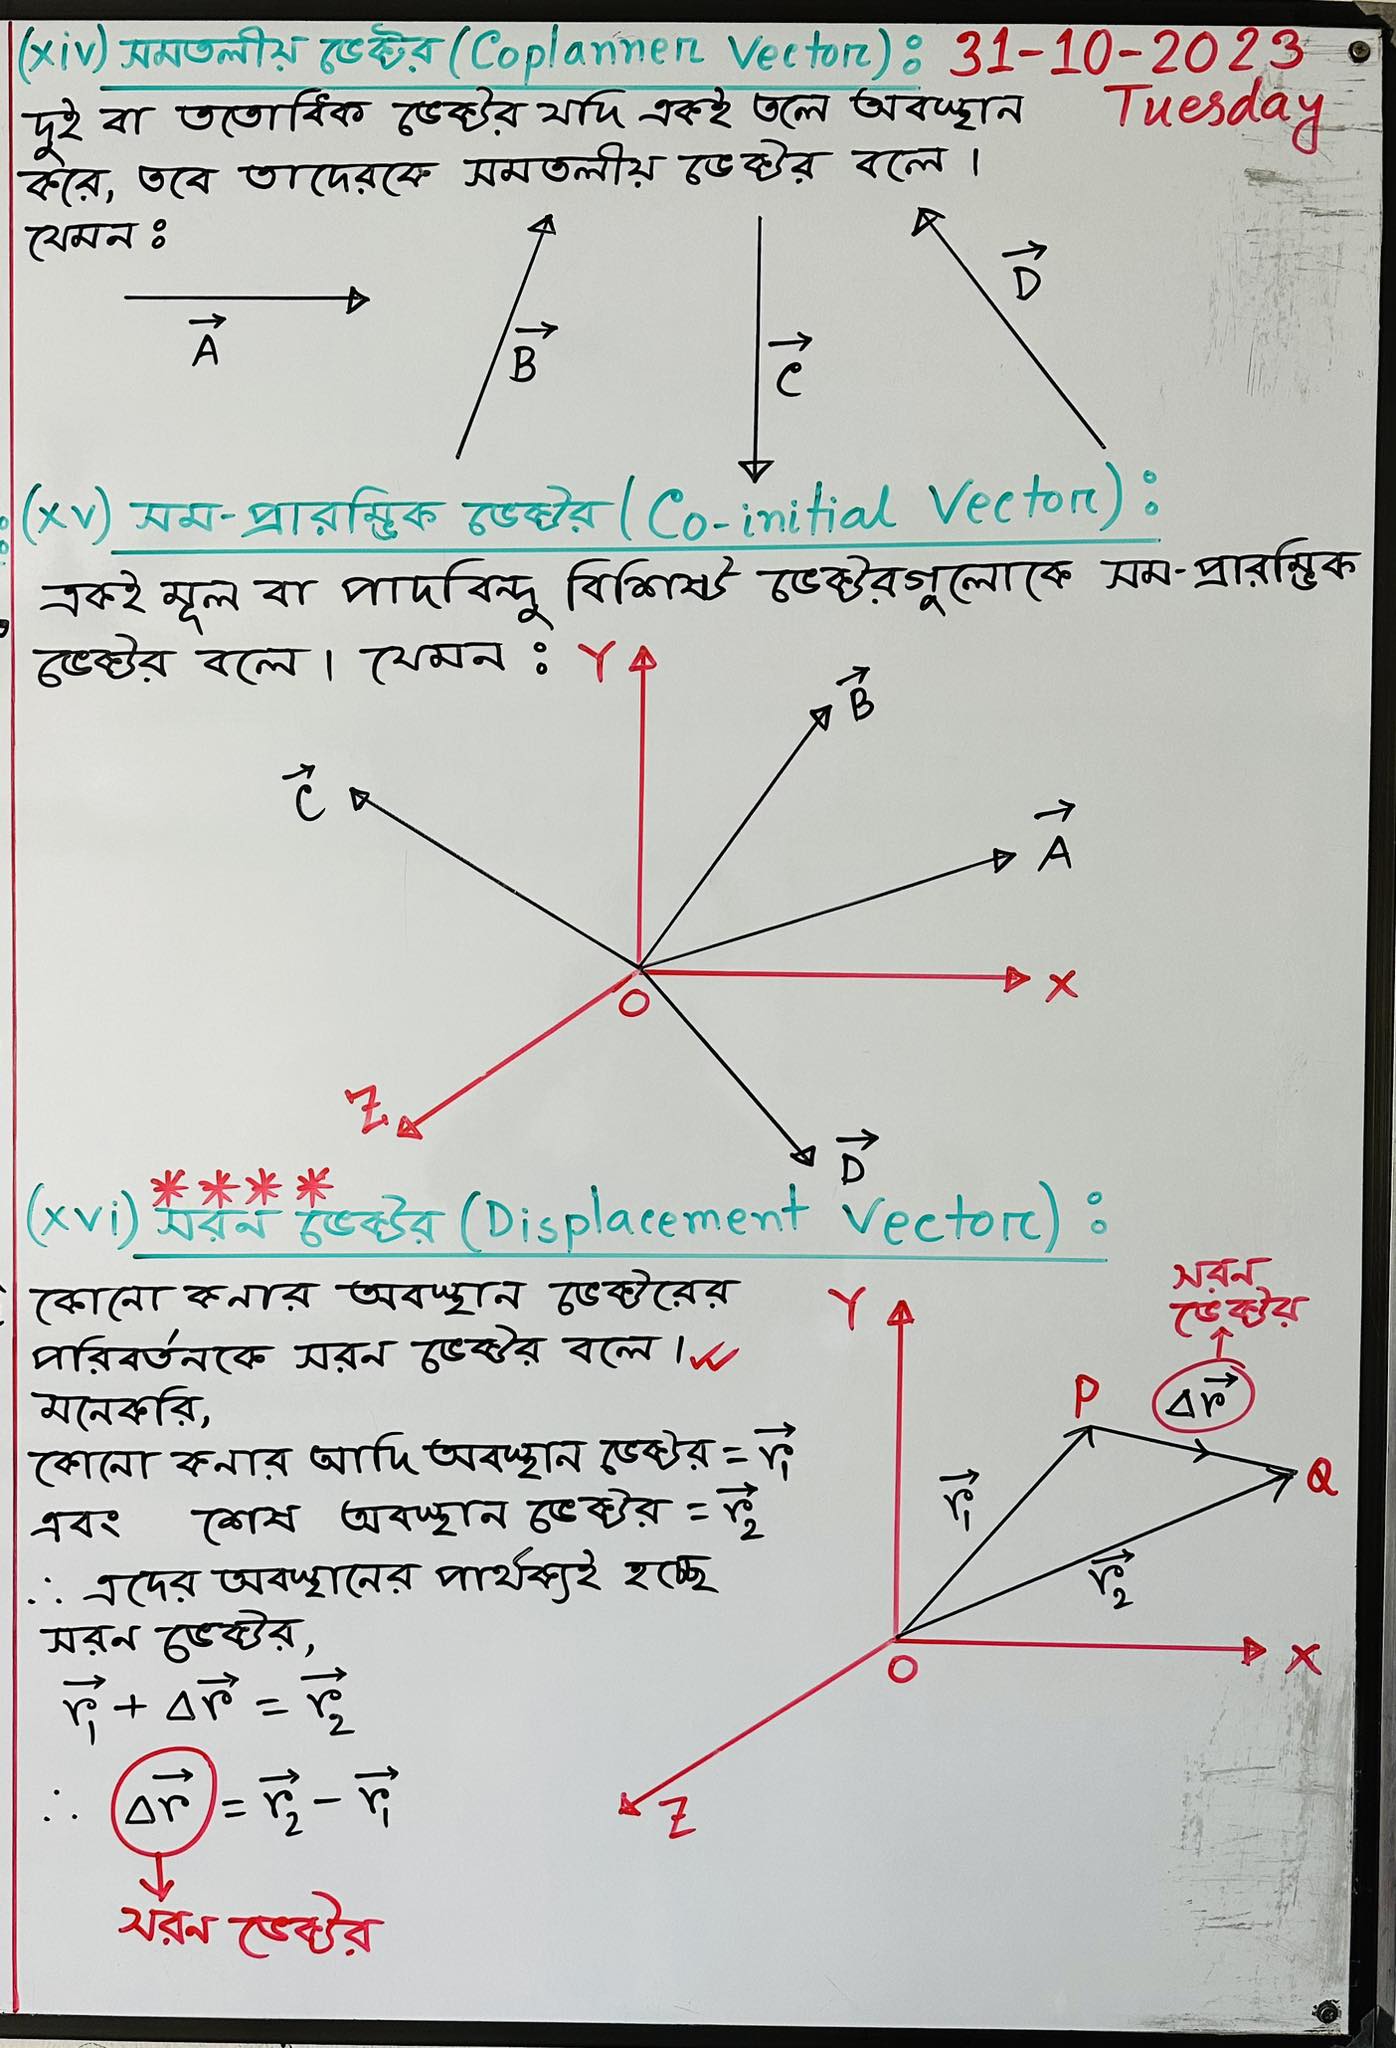 (xiv) সমতলীয় ভেক্টর (Coplanner Vector) : 31-10-2023
Tuesday
দুই বা ততোধিক ভেক্টর যদি একই তলে অবস্থান
করে, তবে তাদেরকে সমতলীয় ভেক্টর বলে।
যেমন :
A
B
C
D
(xv) সম-প্রারম্ভিক ভেক্টর (Co-initial Vector) :
একই মূল বা পাদবিন্দু বিশিষ্ট ভেক্টরগুলোকে সম-প্রারম্ভিক
ভেক্টর বলে। যেমন :
Y
B
C
A
X
O
Z
D
****
(xvi) সরন ভেক্টর (Displacement Vector) :
কোনো কনার অবস্থান ভেক্টরের
পরিবর্তনকে সরন ভেক্টর বলে।
মনেকরি,
কোনো কনার আদি অবস্থান ভেক্টর = r⃗₁
এবং শেষ অবস্থান ভেক্টর = r⃗₂
∴ এদের অবস্থানের পার্থক্যই হচ্ছে
সরন ভেক্টর,
r⃗₁ + Δr⃗ = r⃗₂
∴ Δr⃗ = r⃗₂ - r⃗₁
সরন ভেক্টর
সরন
ভেক্টর
Δr⃗
Y
P
Q
r⃗₁
r⃗₂
O
X
Z